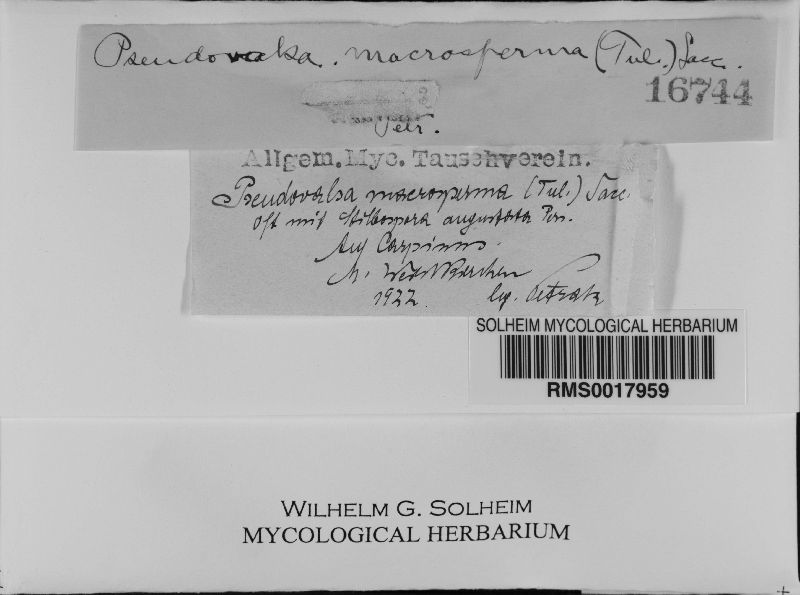 Pseudovalsa. macrosperma (Tul.) Sacc.
16744
Petr.
Allgem. Myc. Tauschverein.
Pseudovalsa macrosperma (Tul.) Sacc.
Oft mit Stilbospora angustata Pers.
Auf Carpinus.
M. Weisskirchen
1922. lg. Petrak
SOLHEIM MYCOLOGICAL HERBARIUM
RMS0017959
WILHELM G. SOLHEIM
MYCOLOGICAL HERBARIUM